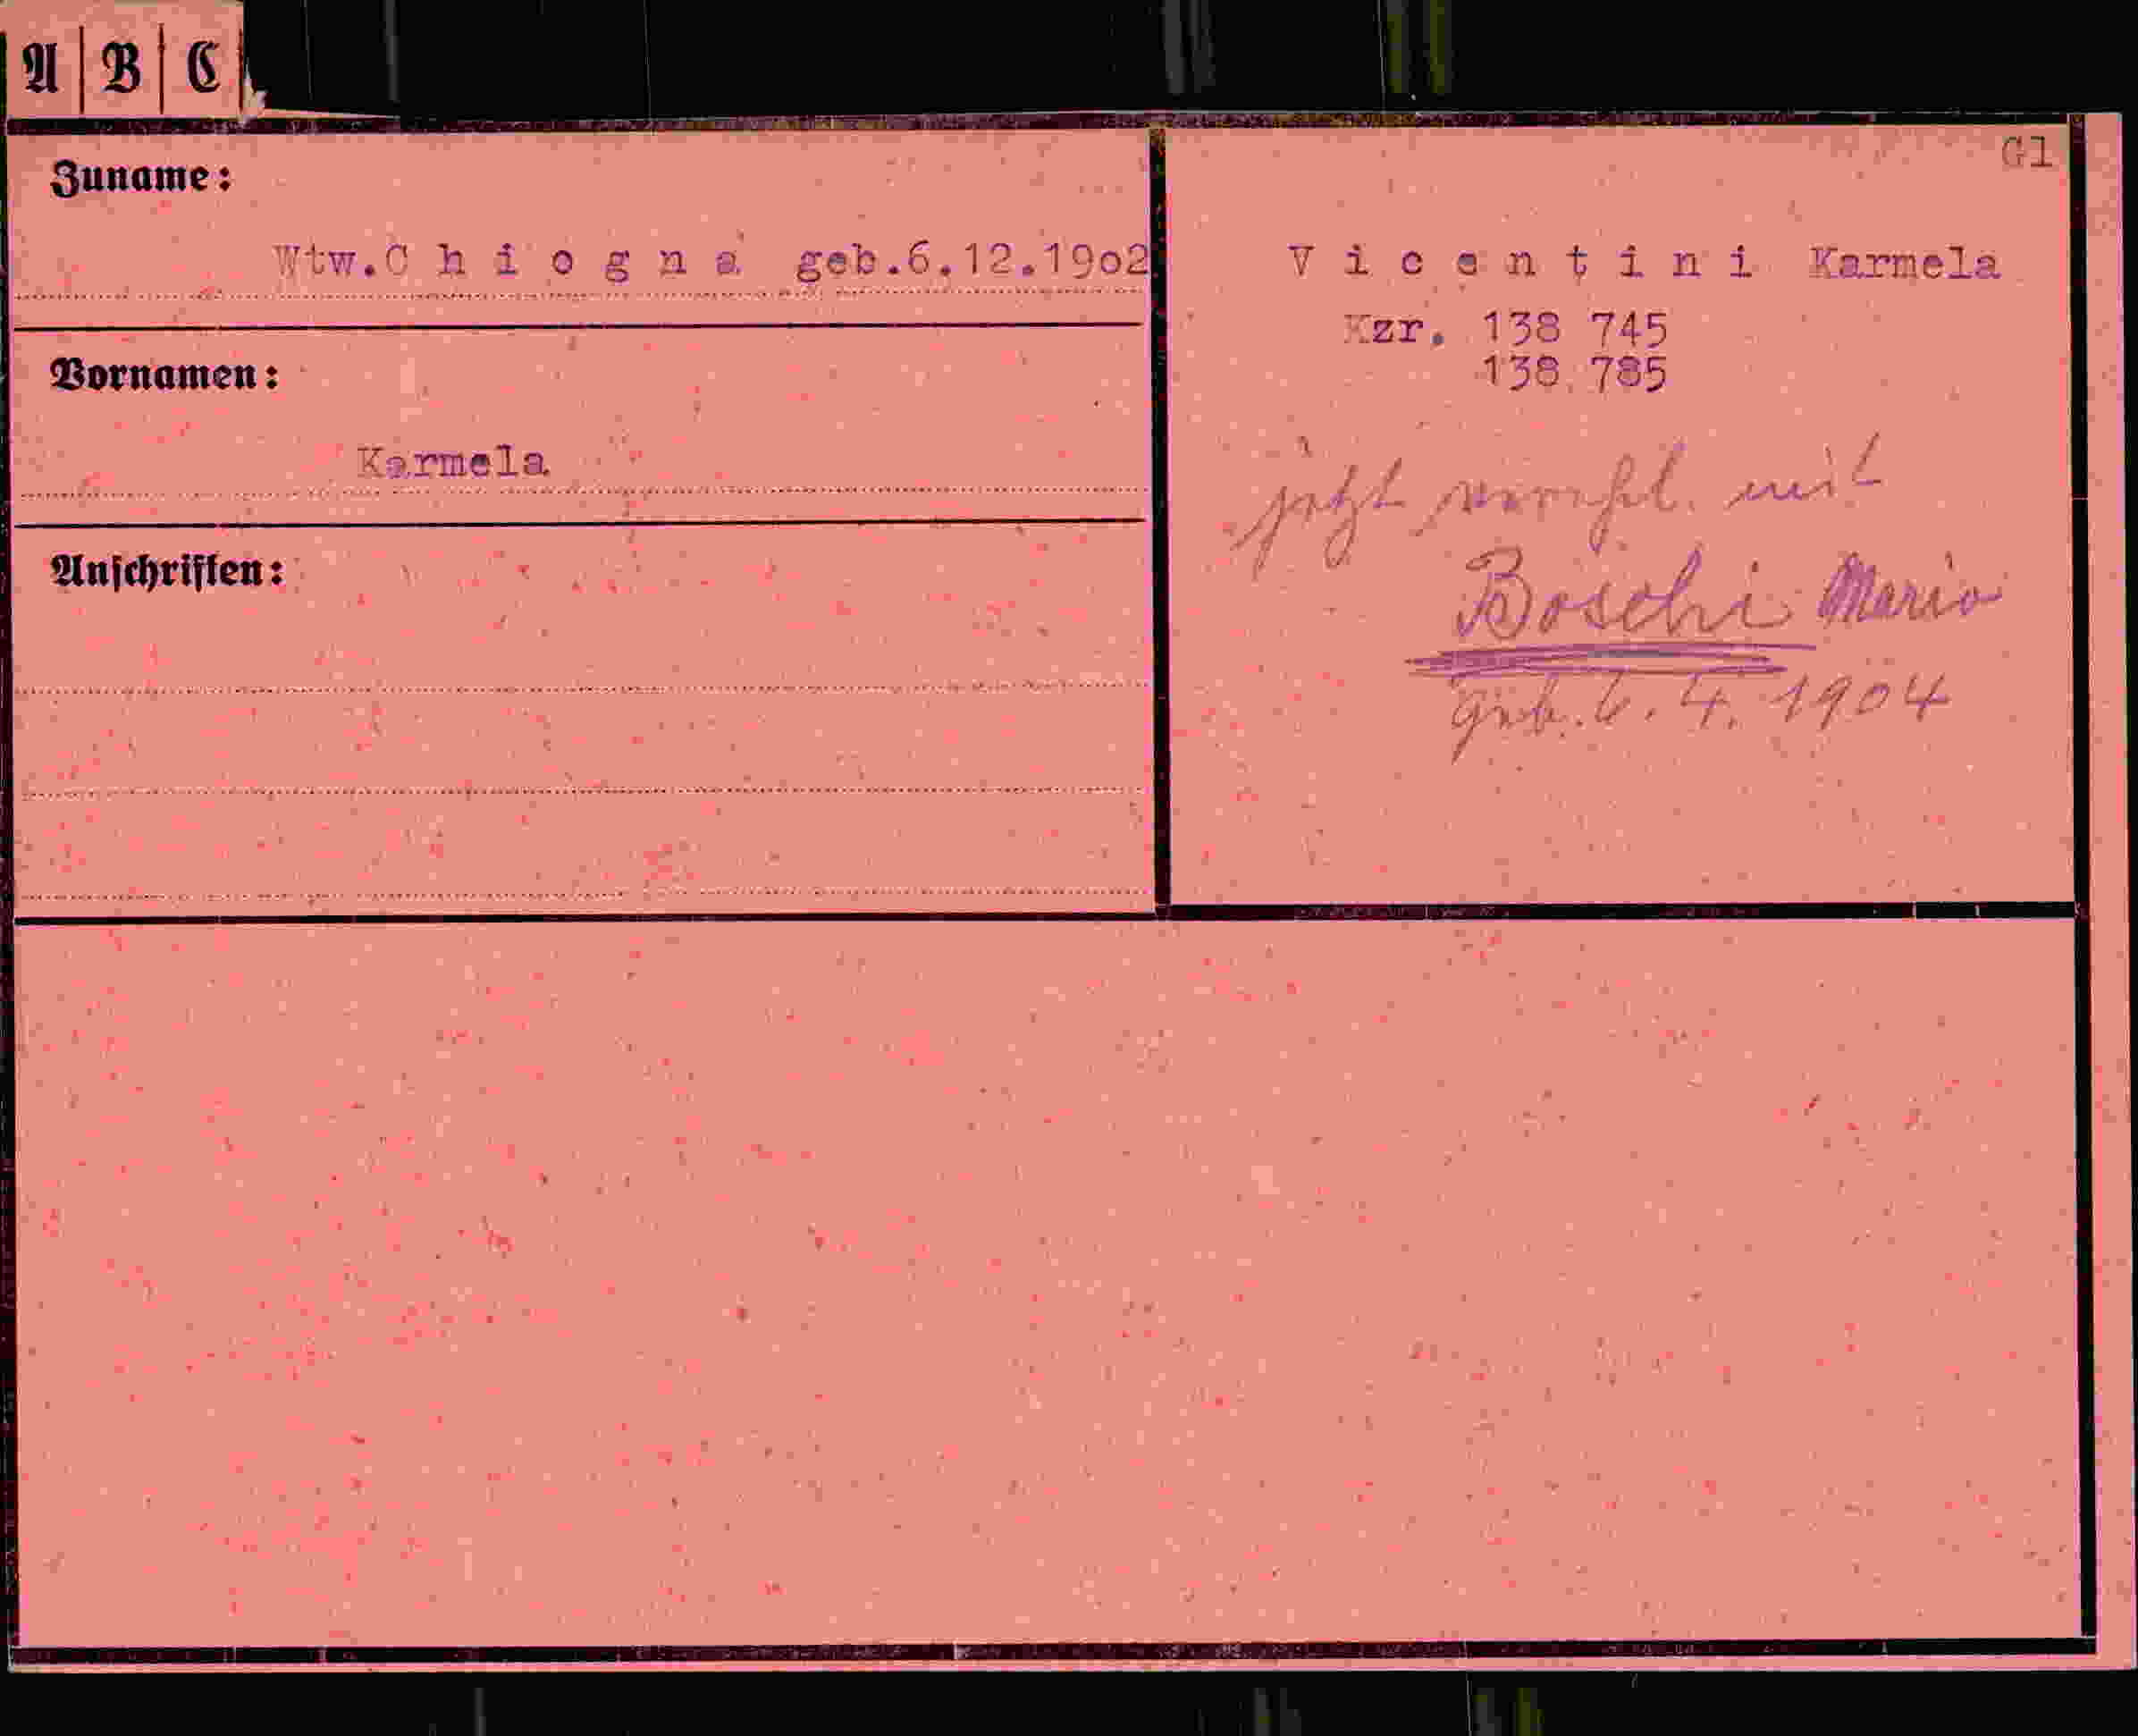 A | B | C
Zuname:
Wtw.C h i o g n a geb.6.12.19o2
Vornamen:
Karmela
Anschriften:
Gl
V i c e n t i n i Karmela
Kzr. 138 745
138 785
jetzt verehel. mit
Boschi Mario
geb. 6. 4. 1904